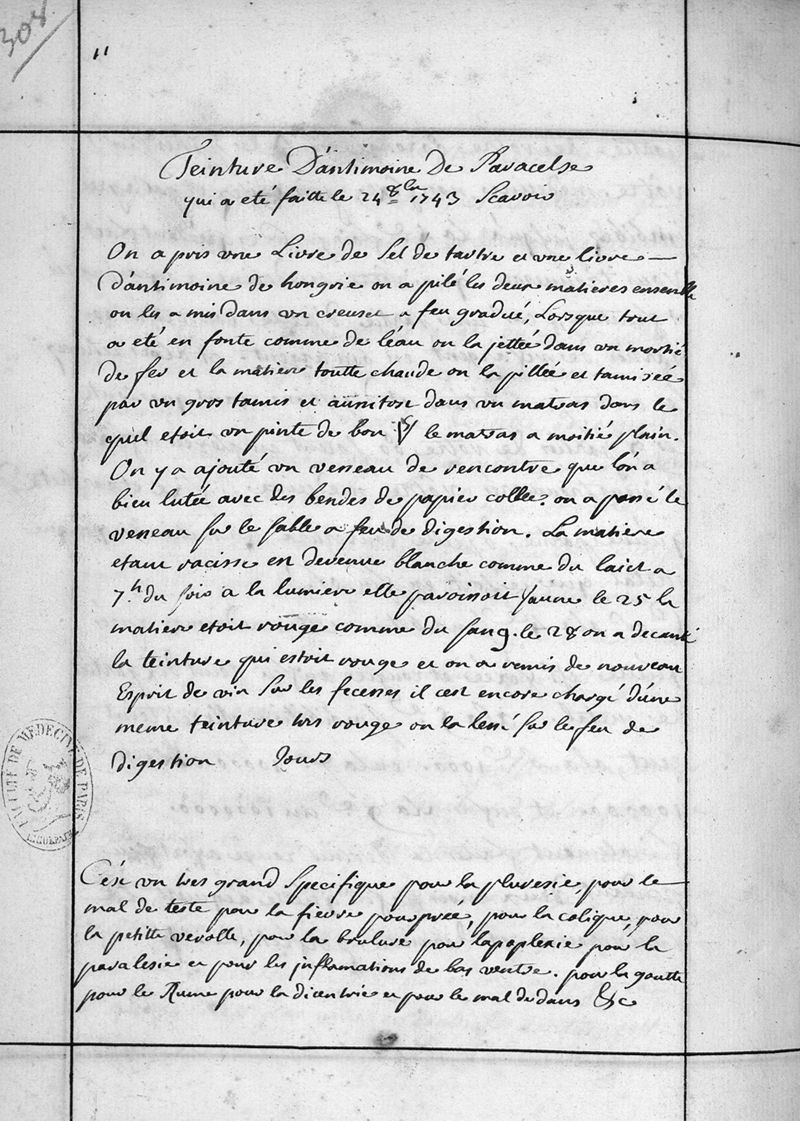 308
"
Teinture D'antimoine De Paracelse
qui a eté faitte le 24 8bre 1743 Scavoir
On a pris vne Livre de Sel de tartre et vne livre
D'antimoine de hongrie on a pilé les deux matieres ensemble
on les a mis dans vn creuset a feu gradué, Lorsque tout
a eté en fonte comme de l'eau on la jettée dans vn mortié
de fer et la matiere toutte chaude on la pillée et tamisée
par vn gros tamis et aussitost dans vn matras dans le
quel etoit vn pinte de bon le matras a moitié plain.
On y a ajouté vn vesseau de rencontre que l'on a
bien lutée avec des bendes de papier collée. on a posé le
vesseau sur le sable a feu de digestion. La matiere
etant racisse en devenue blanche comme du laict a
7.h du soir a la lumiere elle paroissoit jaune le 25 la
matiere etoit rouge comme du sang. le 28 on a decanté
la teinture qui estoit rouge et on a remis de nouveau
Esprit de vin sur les fecesses il cest encore chargé d'une
meme teinture tres rouge on la lessé sur le feu de
digestion Jours
C'est vn tres grand Specifique pour la pluresie, pour le
mal de teste pour la fievre pourprée, pour la colique, pour
la petitte verolle, pour la brulure pour lapoplexie pour la
paralesie et pour les inflamations de bas ventre. pour la goutte
pour le Rume pour la dicentrie et pour le mal de dans &c
FACULTÉ DE MEDECINE DE PARIS